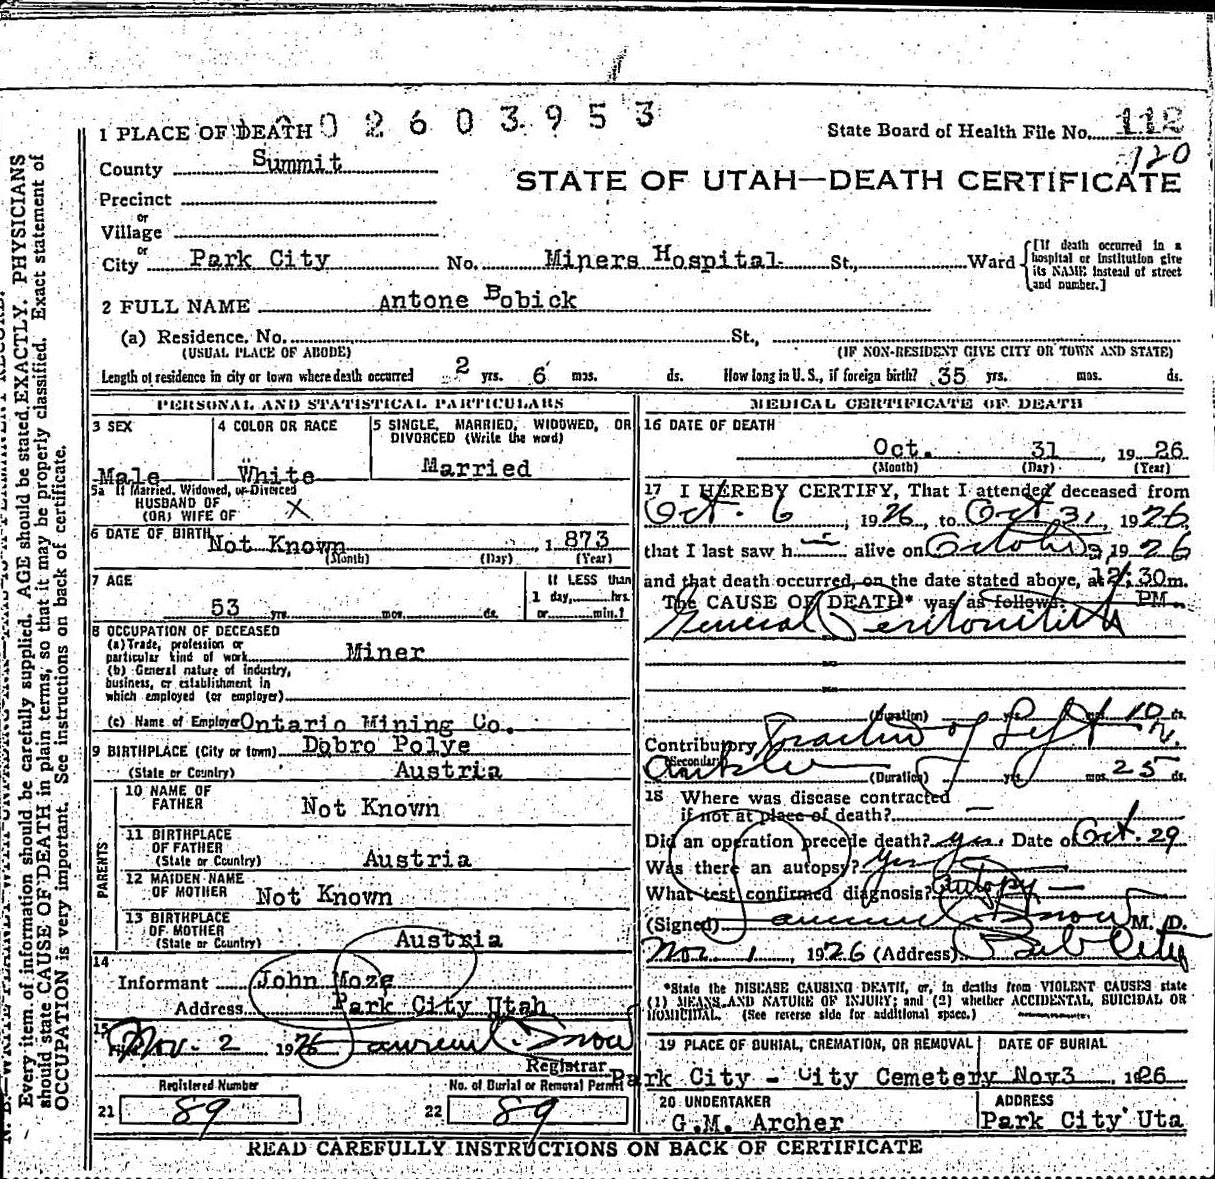 1 PLACE OF DEATH 0 2 6 0 3 9 5 3
State Board of Health File No. 112
120
County Summit
STATE OF UTAH—DEATH CERTIFICATE
Precinct
or
Village
or
City Park City No. Miners Hospital St., Ward
[If death occurred in a
hospital or institution give
its NAME instead of street
and number.]
2 FULL NAME Antone Bobick
(a) Residence, No. St.,
(USUAL PLACE OF ABODE) (IF NON-RESIDENT GIVE CITY OR TOWN AND STATE)
Length of residence in city or town where death occurred 2 yrs. 6 mos. ds. How long in U. S., if foreign birth? 35 yrs. mos. ds.
PERSONAL AND STATISTICAL PARTICULARS
3 SEX
Male
4 COLOR OR RACE
White
5 SINGLE, MARRIED, WIDOWED, OR
DIVORCED (Write the word)
Married
5a If Married, Widowed, or Divorced
HUSBAND OF
(OR) WIFE OF X
6 DATE OF BIRTH Not Known , 1 873
(Month) (Day) (Year)
7 AGE
53 yrs. mos. ds.
If LESS than
1 day, hrs.
or min.?
8 OCCUPATION OF DECEASED
(a) Trade, profession or
particular kind of work Miner
(b) General nature of industry,
business, or establishment in
which employed (or employer)
(c) Name of Employer Ontario Mining Co.
9 BIRTHPLACE (City or town) Dobro Polye
(State or Country) Austria
PARENTS
10 NAME OF
FATHER Not Known
11 BIRTHPLACE
OF FATHER
(State or Country) Austria
12 MAIDEN NAME
OF MOTHER Not Known
13 BIRTHPLACE
OF MOTHER
(State or Country) Austria
14
Informant John Moze
Address Park City Utah
15
Filed Nov. 2 1926 Lawrence C. Snow
Registrar
Registered Number
21 89
No. of Burial or Removal Permit
22 89
MEDICAL CERTIFICATE OF DEATH
16 DATE OF DEATH
Oct. 31 , 19 26
(Month) (Day) (Year)
17 I HEREBY CERTIFY, That I attended deceased from
Oct. 6 , 1926, to Oct 31, 1926
that I last saw h alive on October 1926
and that death occurred, on the date stated above, at 12:30m.
PM.
The CAUSE OF DEATH* was as follows:
General Peritonitis
(Duration) yrs. mos. 10 ds.
Contributory Fraction of Left
(Secondary)
Ankle (Duration) yrs. mos. 25 ds.
18 Where was disease contracted
if not at place of death? —
Did an operation precede death? yes. Date of Oct. 29
Was there an autopsy? Yes
What test confirmed diagnosis? Autopsy —
(Signed) Lawrence C. Snow M. D.
Nov. 1 , 1926 (Address) Park City
*State the DISEASE CAUSING DEATH, or, in deaths from VIOLENT CAUSES state
(1) MEANS AND NATURE OF INJURY; and (2) whether ACCIDENTAL, SUICIDAL OR
HOMICIDAL. (See reverse side for additional space.)
19 PLACE OF BURIAL, CREMATION, OR REMOVAL DATE OF BURIAL
Park City - City Cemetery Nov3 , 1926
20 UNDERTAKER ADDRESS
G.M. Archer Park City Uta
READ CAREFULLY INSTRUCTIONS ON BACK OF CERTIFICATE
Every item of information should be carefully supplied. AGE should be stated EXACTLY. PHYSICIANS
should state CAUSE OF DEATH in plain terms, so that it may be properly classified. Exact statement of
OCCUPATION is very important. See instructions on back of certificate.